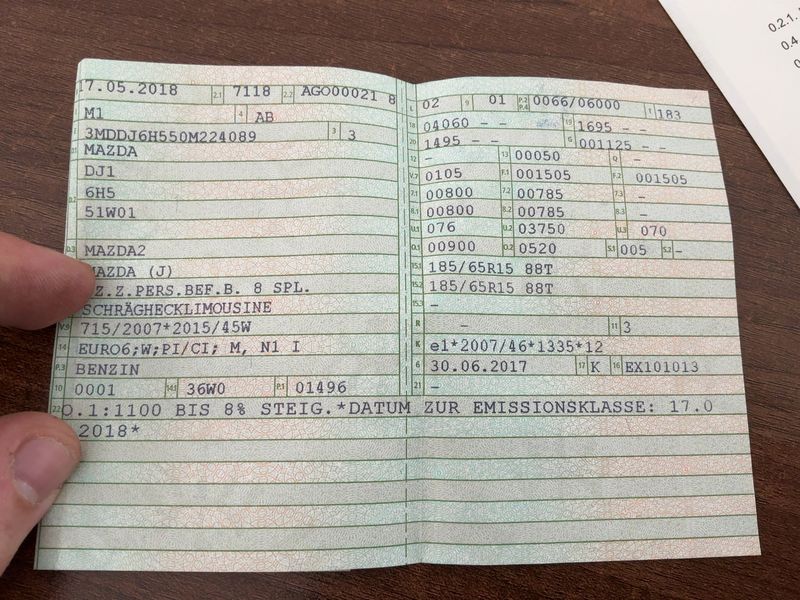 17.05.2018 2.1 7118 2.2 AGO00021 8
M1 4 AB
3MDDJ6H550M224089 3 3
MAZDA
DJ1
6H5
51W01
D.3 MAZDA2
MAZDA (J)
Z.Z.PERS.BEF.B. 8 SPL.
SCHRÄGHECKLIMOUSINE
V.9 715/2007*2015/45W
14 EURO6;W;PI/CI; M, N1 I
P.3 BENZIN
10 0001 14.1 36W0 P.1 01496
L 02 9 01 P.2 P.4 0066/06000 T 183
18 04060 - - 19 1695 - -
20 1495 - - G 001125 - -
12 - 13 00050 Q -
V.7 0105 F.1 001505 F.2 001505
7.1 00800 7.2 00785 7.3 -
8.1 00800 8.2 00785 8.3 -
U.1 076 U.2 03750 U.3 070
O.1 00900 O.2 0520 S.1 005 S.2 -
15.1 185/65R15 88T
15.2 185/65R15 88T
15.3 -
R - 11 3
K e1*2007/46*1335*12
6 30.06.2017 17 K 16 EX101013
21 -
22 O.1:1100 BIS 8% STEIG.*DATUM ZUR EMISSIONSKLASSE: 17.0
.2018*
0.2.1.
0.4.